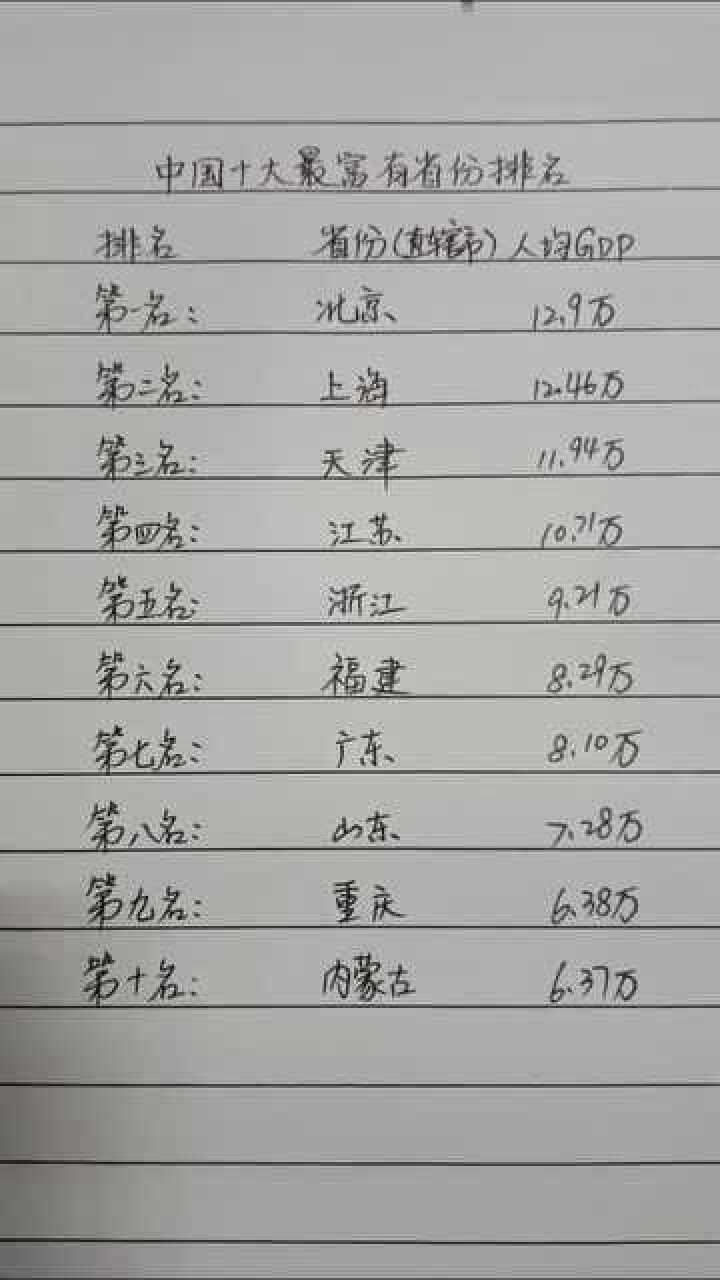 中国十大最富有省份排名
排名 省份(直辖市) 人均GDP
第一名: 北京 12.9万
第二名: 上海 12.46万
第三名: 天津 11.94万
第四名: 江苏 10.71万
第五名: 浙江 9.21万
第六名: 福建 8.29万
第七名: 广东 8.10万
第八名: 山东 7.28万
第九名: 重庆 6.38万
第十名: 内蒙古 6.37万